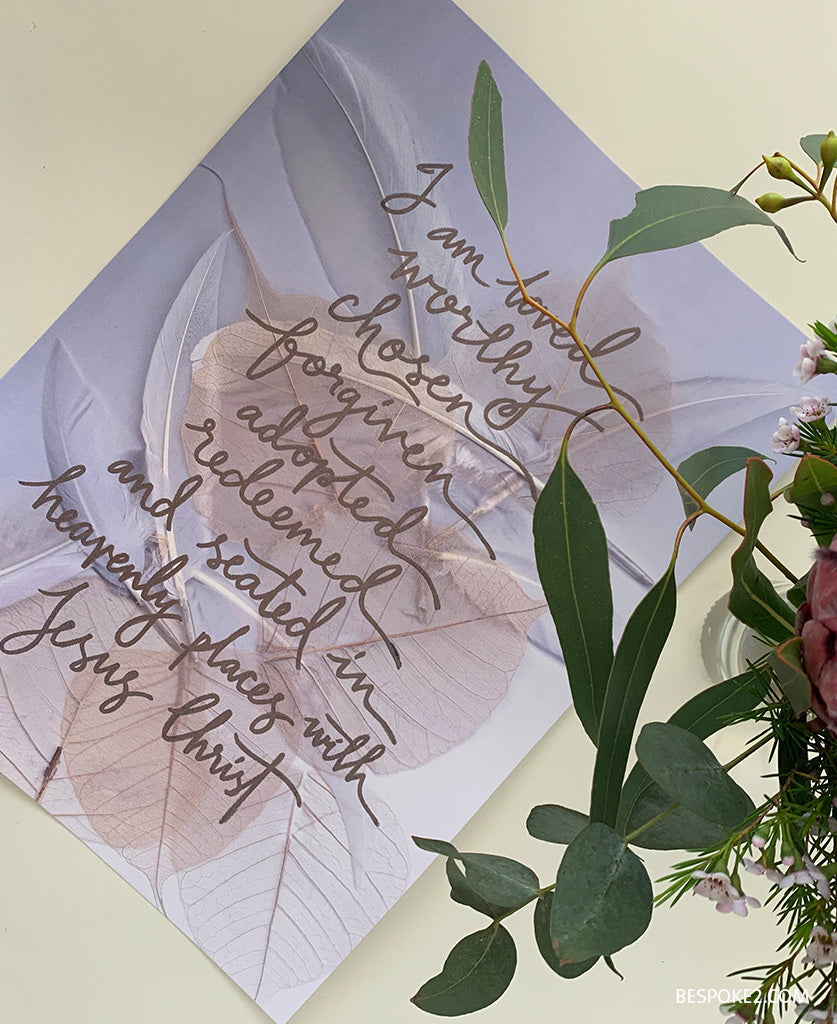 I
am loved
worthy
chosen
forgiven
adopted
redeemed
and seated in
heavenly places with
Jesus Christ
BESPOKE2.COM